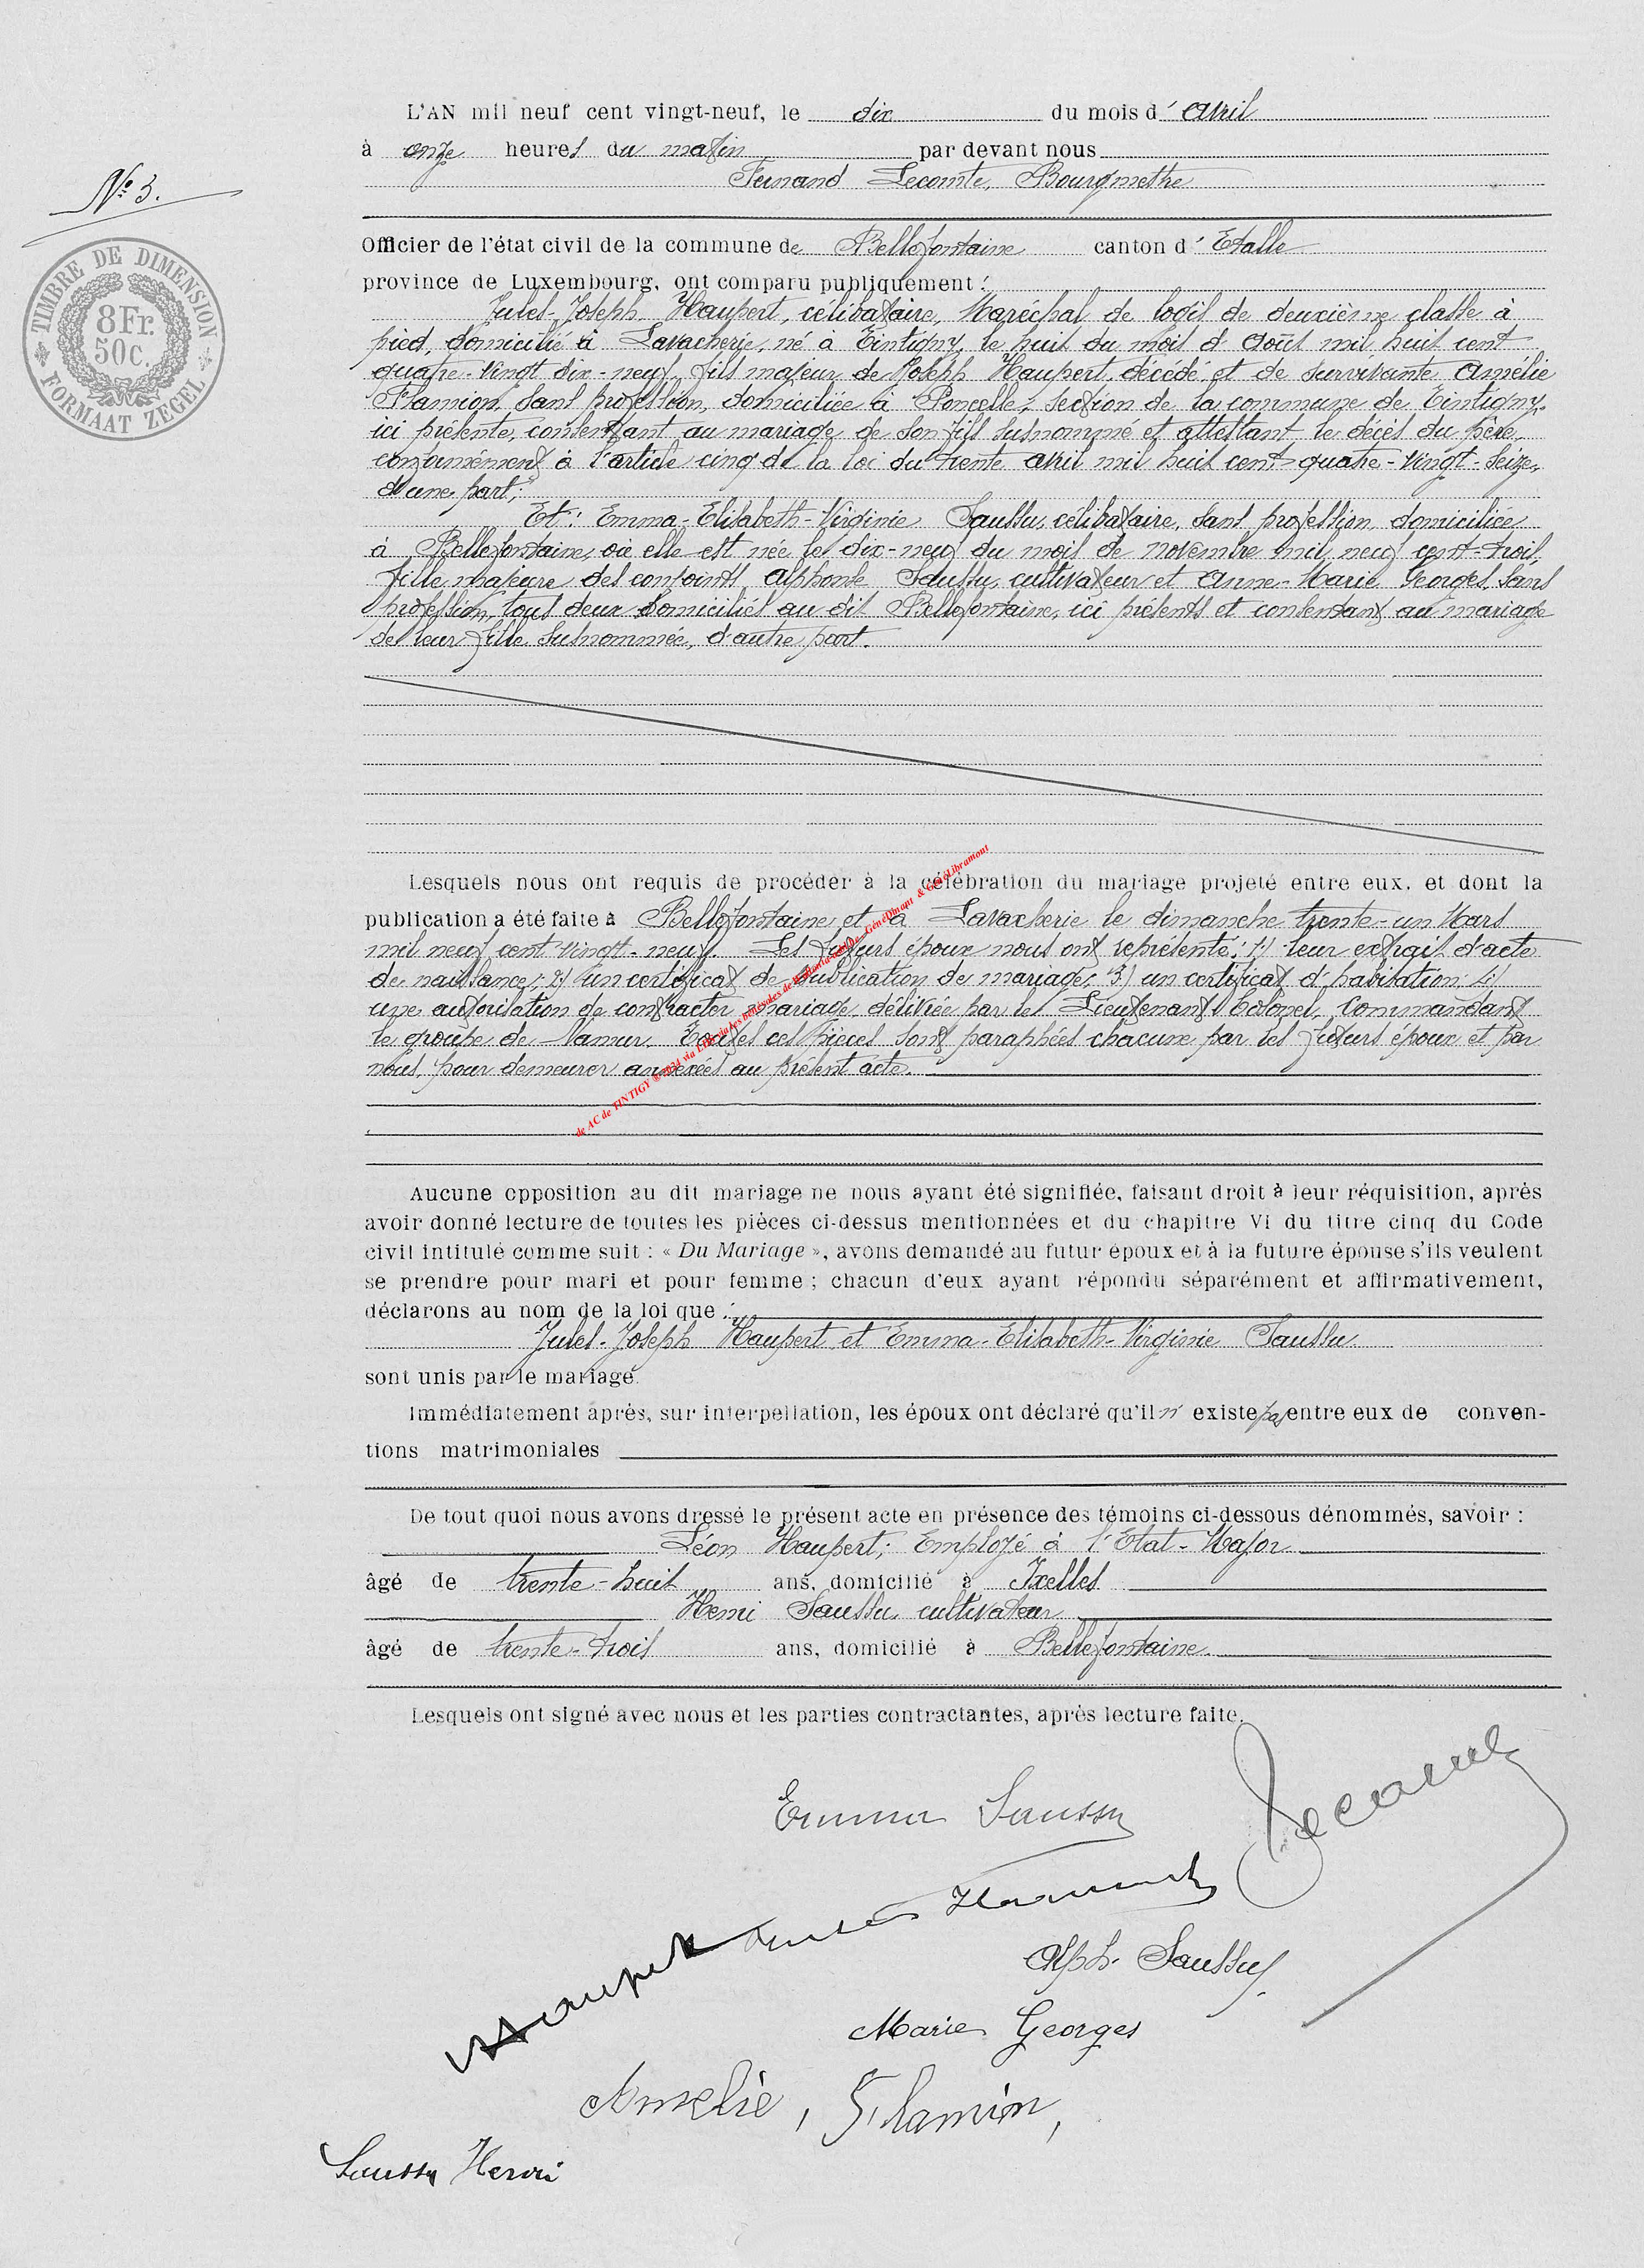 L'AN mil neuf cent vingt-neuf, le dix du mois d' Avril
à onze heures du matin par devant nous
Fernand Lecomte, Bourgmestre
N° 3.
TIMBRE DE DIMENSION
8 Fr.
50 c.
FORMAAT ZEGEL
Officier de l'état civil de la commune de Bellefontaine canton d' Etalle
province de Luxembourg, ont comparu publiquement :
Jules-Joseph Haupert, célibataire, Maréchal de logis de deuxième classe à
pied, domicilié à Lavacherie, né à Tintigny, le huit du mois d' Août mil huit cent
quatre-vingt dix-neuf, fils majeur de Joseph Haupert, décédé et de survivante Amélie
Flamion, sans profession, domiciliée à Poncelle, section de la commune de Tintigny,
ici présente, consentant au mariage de son fils susnommé et attestant le décès du père,
conformément à l'article cinq de la loi du trente avril mil huit cent quatre-vingt-seize,
d'une part;
Et : Emma-Elisabeth-Virginie Saussu, célibataire, sans profession, domiciliée
à Bellefontaine, où elle est née le dix-neuf du mois de novembre mil neuf cent-trois,
fille majeure des conjoints Alphonse Saussu, cultivateur et Anne-Marie Georges, sans
profession, tous deux domiciliés au dit Bellefontaine, ici présents et consentant au mariage
de leur fille susnommée, d'autre part.
Lesquels nous ont requis de procéder à la célébration du mariage projeté entre eux, et dont la
publication a été faite à Bellefontaine et à Lavacherie le dimanche trente-un Mars
mil neuf cent vingt-neuf. Les futurs époux nous ont représenté : 1) leur extrait d'acte
de naissance; 2) un certificat de publication de mariage; 3) un certificat d'habitation; 4)
une autorisation de contracter mariage délivrée par le Lieutenant Colonel, Commandant
le groupe de Namur. Toutes ces pièces sont paraphées chacune par les futurs époux et par
nous, pour demeurer annexées au présent acte.
de AC de TINTIGY © 2021 via Librairie & GénéLibramont
Aucune opposition au dit mariage ne nous ayant été signifiée, faisant droit à leur réquisition, après
avoir donné lecture de toutes les pièces ci-dessus mentionnées et du chapitre VI du titre cinq du Code
civil intitulé comme suit : « Du Mariage », avons demandé au futur époux et à la future épouse s'ils veulent
se prendre pour mari et pour femme ; chacun d'eux ayant répondu séparément et affirmativement,
déclarons au nom de la loi que :
Jules-Joseph Haupert et Emma-Elisabeth-Virginie Saussu
sont unis par le mariage.
Immédiatement après, sur interpellation, les époux ont déclaré qu'il n' existe pas entre eux de conven-
tions matrimoniales
De tout quoi nous avons dressé le présent acte en présence des témoins ci-dessous dénommés, savoir :
Léon Haupert; Employé à l'Etat-Major
âgé de trente-huit ans, domicilié à Ixelles
Henri Saussu, cultivateur
âgé de trente-trois ans, domicilié à Bellefontaine.
Lesquels ont signé avec nous et les parties contractantes, après lecture faite.
Emma Saussu
Lecomte
Haupert
Alph. Saussu
Marie Georges
Amelie, Flamion,
Saussu Henri